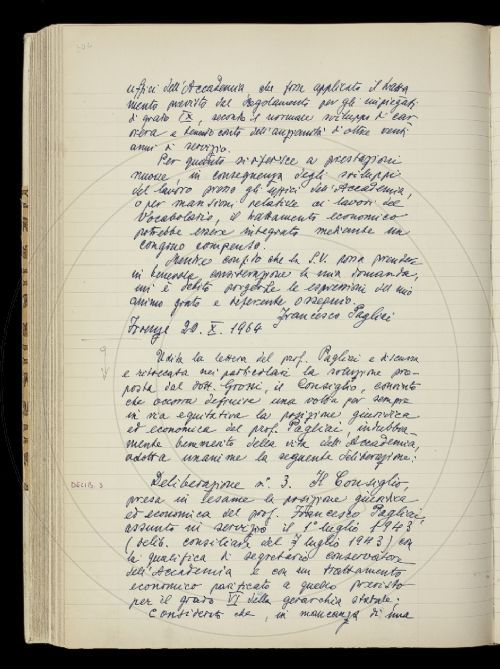 uffici dell'Accademia, che fosse applicato il tratta
mento previsto dal Regolamento per gli impiegati
di grado IX, secondo il normale sviluppo di car
riera e tenuto conto dell'anzianità di oltre venti
anni di servizio.
Per quanto si riferisce a prestazioni
nuove, in conseguenza degli sviluppi
del lavoro presso gli uffici dell'Accademia,
o per mansioni relative ai lavori del
Vocabolario, il trattamento economico
potrebbe essere integrato mediante un
congruo compenso.
Mentre confido che la S.V. possa prendere
in benevola considerazione la mia domanda,
mi è debito porgerLe le espressioni del mio
animo grato e deferente ossequio.
Francesco Pagliai
Firenze 20. X. 1964
9
Udita la lettera del prof. Pagliai e discussa
e ritoccata nei particolari la soluzione pro-
posta dal dott. Grossi, il Consiglio, convinto
che occorra definire una volta per sempre
in via equitativa la posizione giuridica
ed economica del prof. Pagliai indubbia-
mente benemerito della vita dell'Accademia,
adotta unanime la seguente deliberazione:
DELIB. 3
Deliberazione n°. 3. Il Consiglio
presa in esame la posizione giuridica
ed economica del prof. Francesco Pagliai,
assunto in servizio il 1° luglio 1943
(delib. consiliare del 7 luglio 1943) con
la qualifica di segretario conservatore
dell'Accademia e con un trattamento
economico parificato a quello previsto
per il grado VI della gerarchia statale;
Considerato che, in mancanza di una